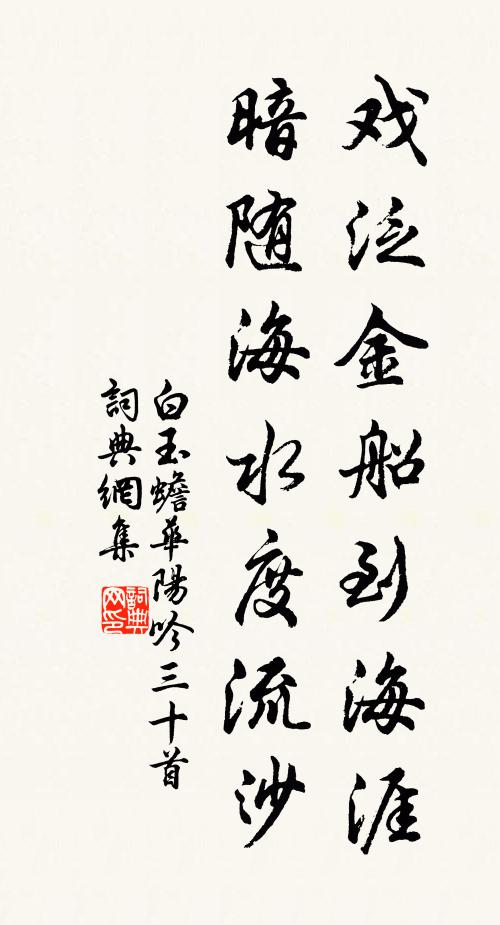 戏泛金船到海涯
暗随海水度流沙
白玉蟾華陽吟三十首
詞典網集
詞典网印